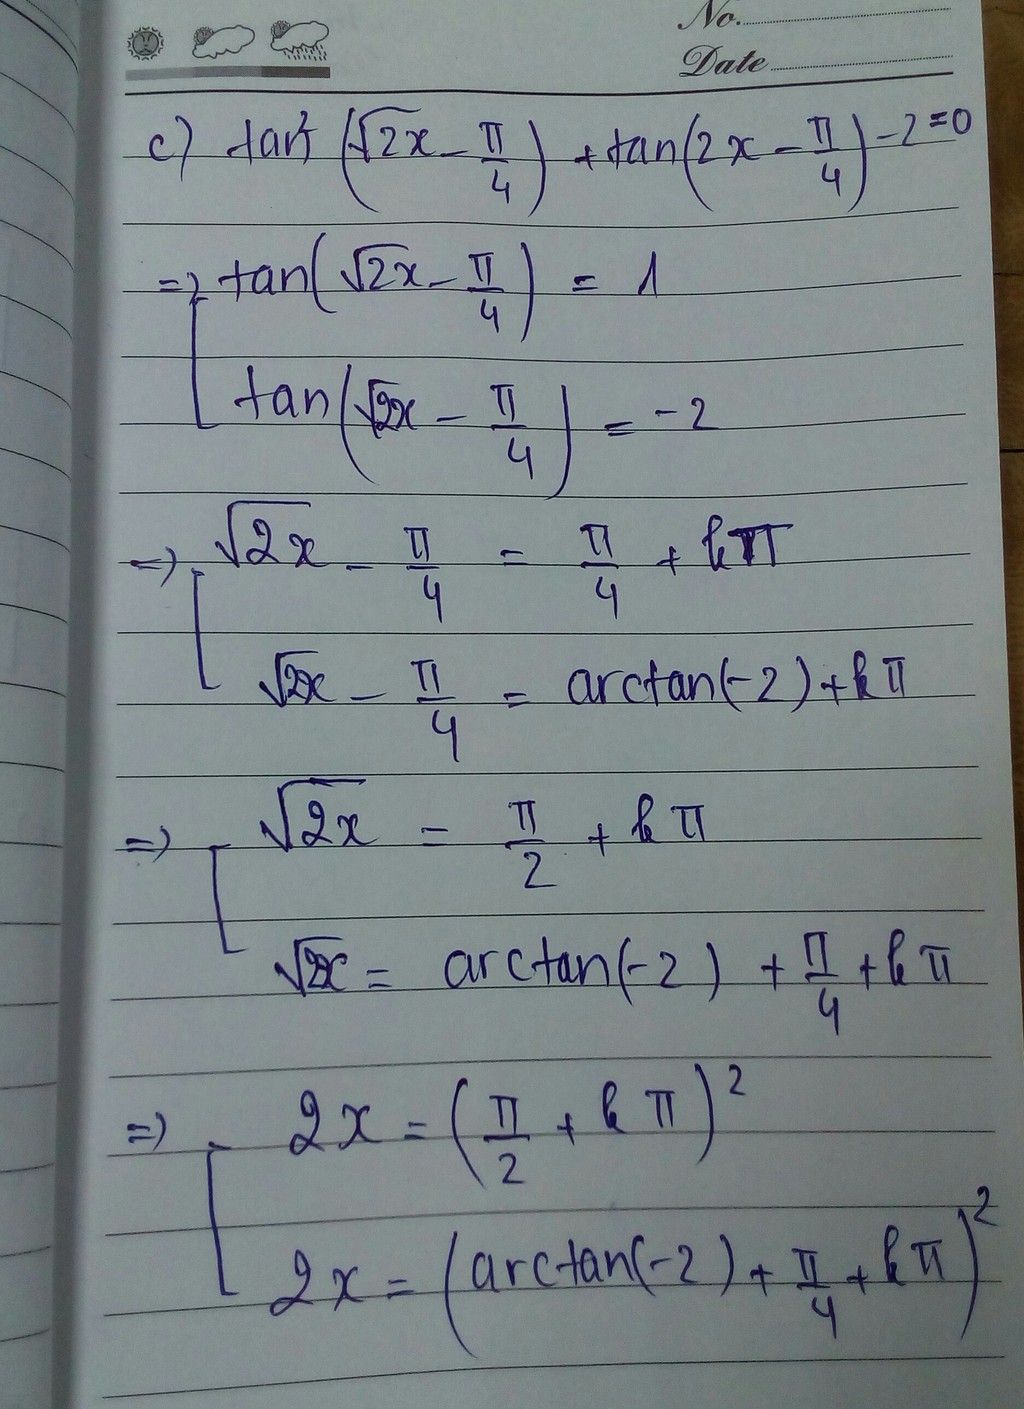 No.
Date
c) tan² (√2x - π/4) + tan(2x - π/4) - 2 = 0
=> tan(√2x - π/4) = 1
tan(√2x - π/4) = -2
=> √2x - π/4 = π/4 + kπ
√2x - π/4 = arctan(-2) + kπ
=> √2x = π/2 + kπ
√2x = arctan(-2) + π/4 + kπ
=> 2x = (π/2 + kπ)²
2x = (arctan(-2) + π/4 + kπ)²